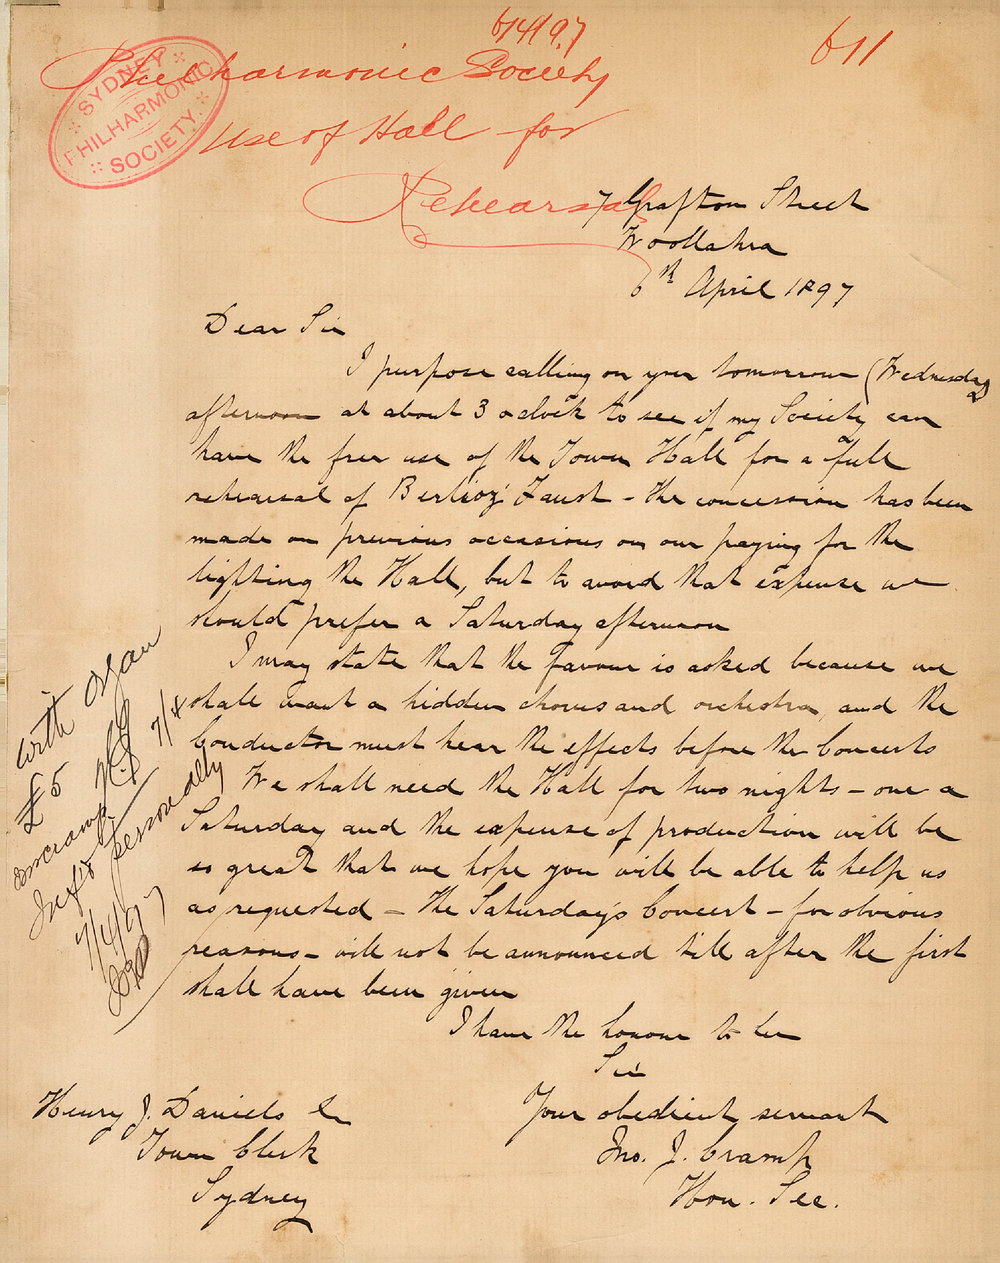 6/4/97
611
Philharmonic Society
Use of Hall for
Rehearsal
SYDNEY
PHILHARMONIC
SOCIETY
7 Grafton Street
Woollahra
6th April 1897
Dear Sir
I purpose calling on you tomorrow (Wednesday)
afternoon at about 3 o'clock to see if my Society can
have the free use of the Town Hall for a full
rehearsal of Berlioz' Faust - the concession has been
made on previous occasions on our paying for the
lighting the Hall, but to avoid that expense we
should prefer a Saturday afternoon
I may state that the favour is asked because we
shall want a hidden chorus and orchestra, and the
Conductor must hear the effects before the Concerts
We shall need the Hall for two nights - one a
Saturday and the expense of production will be
so great that we hope you will be able to help us
as requested - the Saturday's Concert - for obvious
reasons - will not be announced till after the first
shall have been given
I have the honour to be
Sir
Your obedient servant
Jno. J. Cramp
Hon. Sec.
Henry J. Daniels
Town Clerk
Sydney
with organ
£5
7/4
Cramp
personally
7/4/97